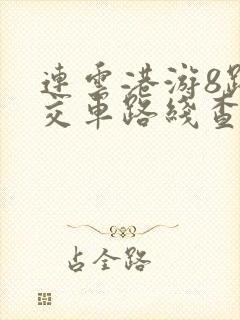 連雲港游8路
交車路綫查
占全路